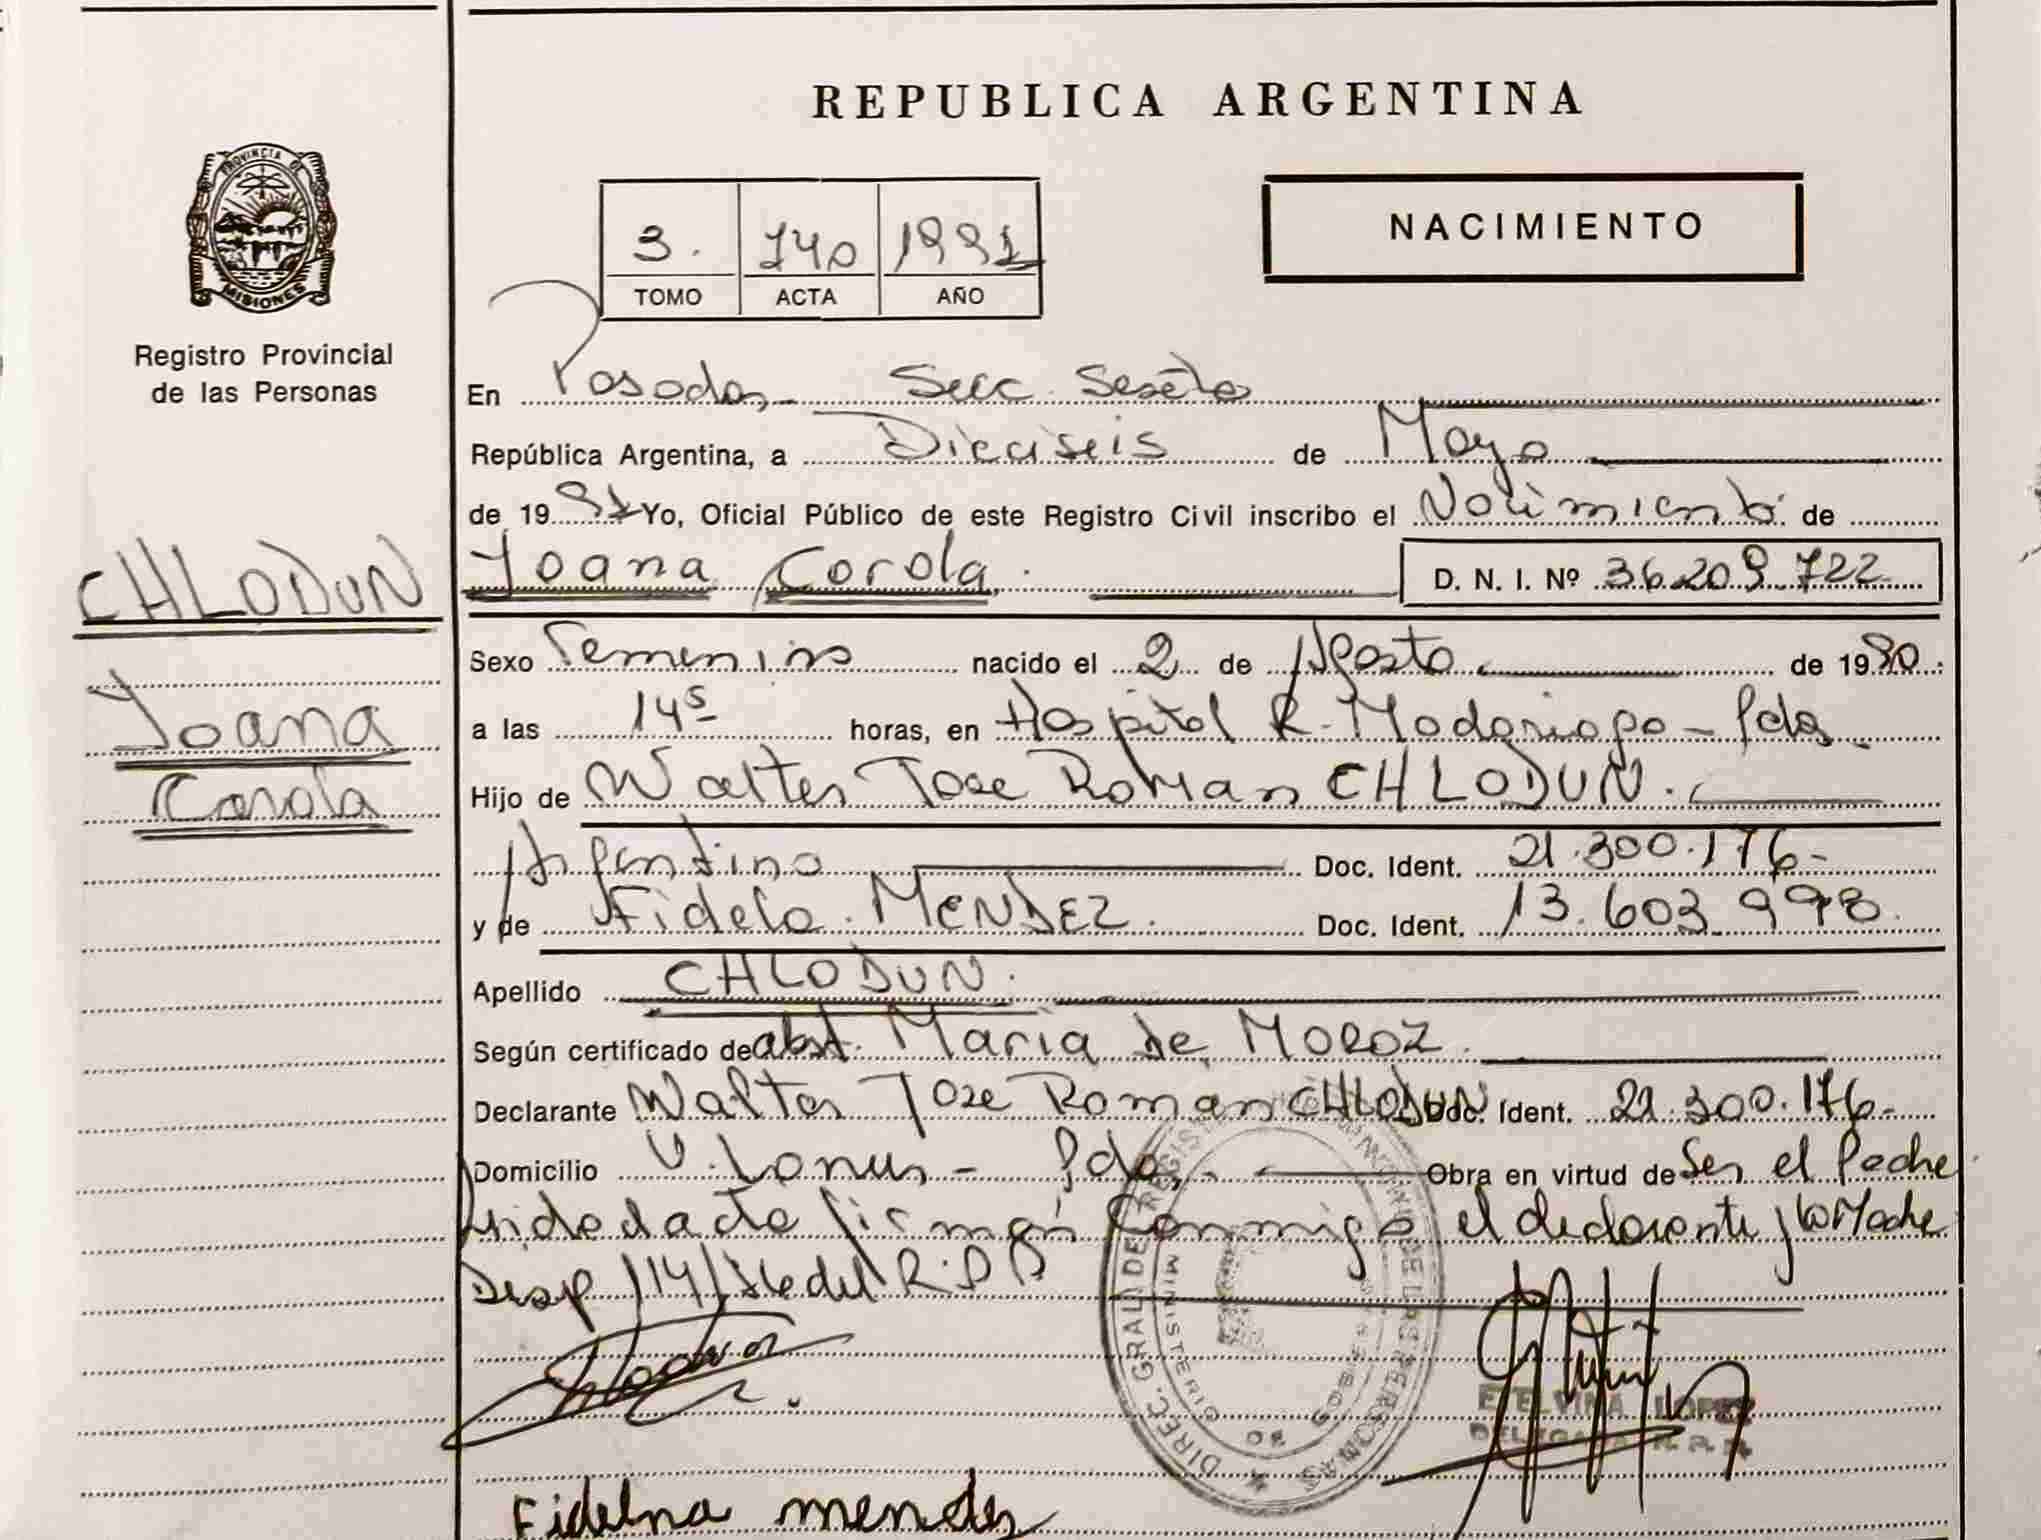 REPUBLICA ARGENTINA
PROVINCIA DE
MISIONES
Registro Provincial
de las Personas
3. 140 1991
TOMO ACTA AÑO
NACIMIENTO
En Posadas - Secc. Sexta
República Argentina, a Dieciseis de Mayo
de 1991 Yo, Oficial Público de este Registro Civil inscribo el Nacimiento de
Yoana Carola. D. N. I. Nº 36.209.722
CHLODUN
Yoana
Carola
Sexo Femenino nacido el 2 de Agosto de 1990.
a las 14 s horas, en Hospital R. Madariaga - Pdas.
Hijo de Walter Jose Roman CHLODUN.
Argentino Doc. Ident. 21.300.176-
y de Fidela. MENDEZ. Doc. Ident. 13.603.998.
Apellido CHLODUN.
Según certificado de obst. Maria de MOROZ.
Declarante Walter Jose Roman CHLODUN Doc. Ident. 21.300.176-
Domicilio V. Lanus - Pdas. Obra en virtud de Ser el Padre
acta firman Conmigo el declarante y la Madre
Disp 114/ del R.P.P
DIREC. GRAL DE REGISTRO DE LAS PERSONAS
MINISTERIO DE GOBIERNO
ETELVINA LOPEZ
DELEGADA R.P.P.
Fidelna mendez